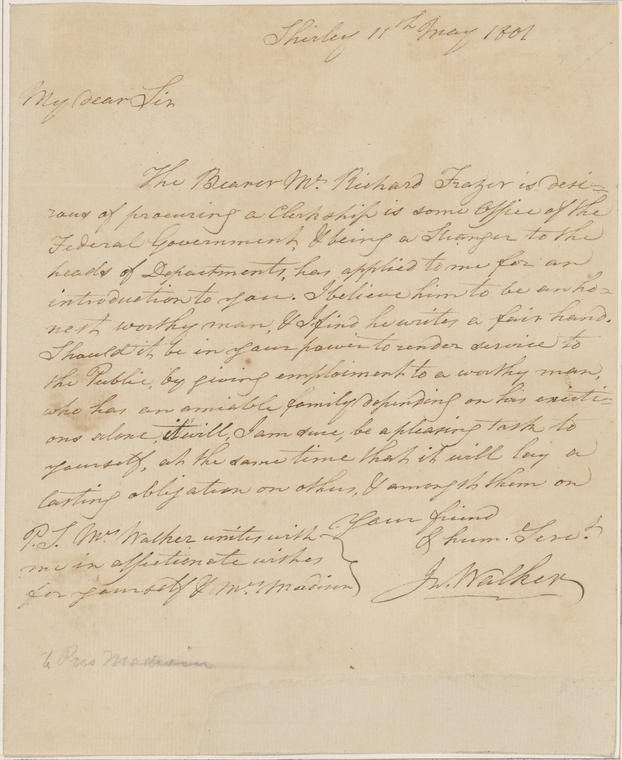 Shirley 11th May 1801
My dear Sir
The Bearer Mr. Richard Frazer is desi=
rous of procuring a Clerkship is some Office of the
Federal Government, & being a Stranger to the
heads of Departments, has applied to me for an
introduction to you. I believe him to be an ho=
nest worthy man, & I find he writes a fair hand.
Should it be in your power to render service to
the Public, by giving emploiment to a worthy man,
who has an amiable family depending on his exerti=
ons alone, it will, I am sure, be a pleasing task to
yourself, at the same time that it will lay a
lasting obligation on others, & amongst them on
Your friend
& hum. Servt.
Jn. Walker
P.S. Mrs Walker unites with
me in affectionate wishes
for yourself & Mrs. Madison
to Pres Madison